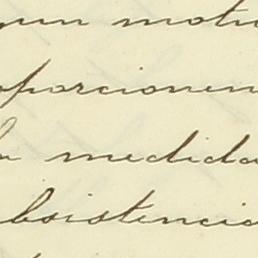 gun motiv
oporcionen
la medida
bsistencia